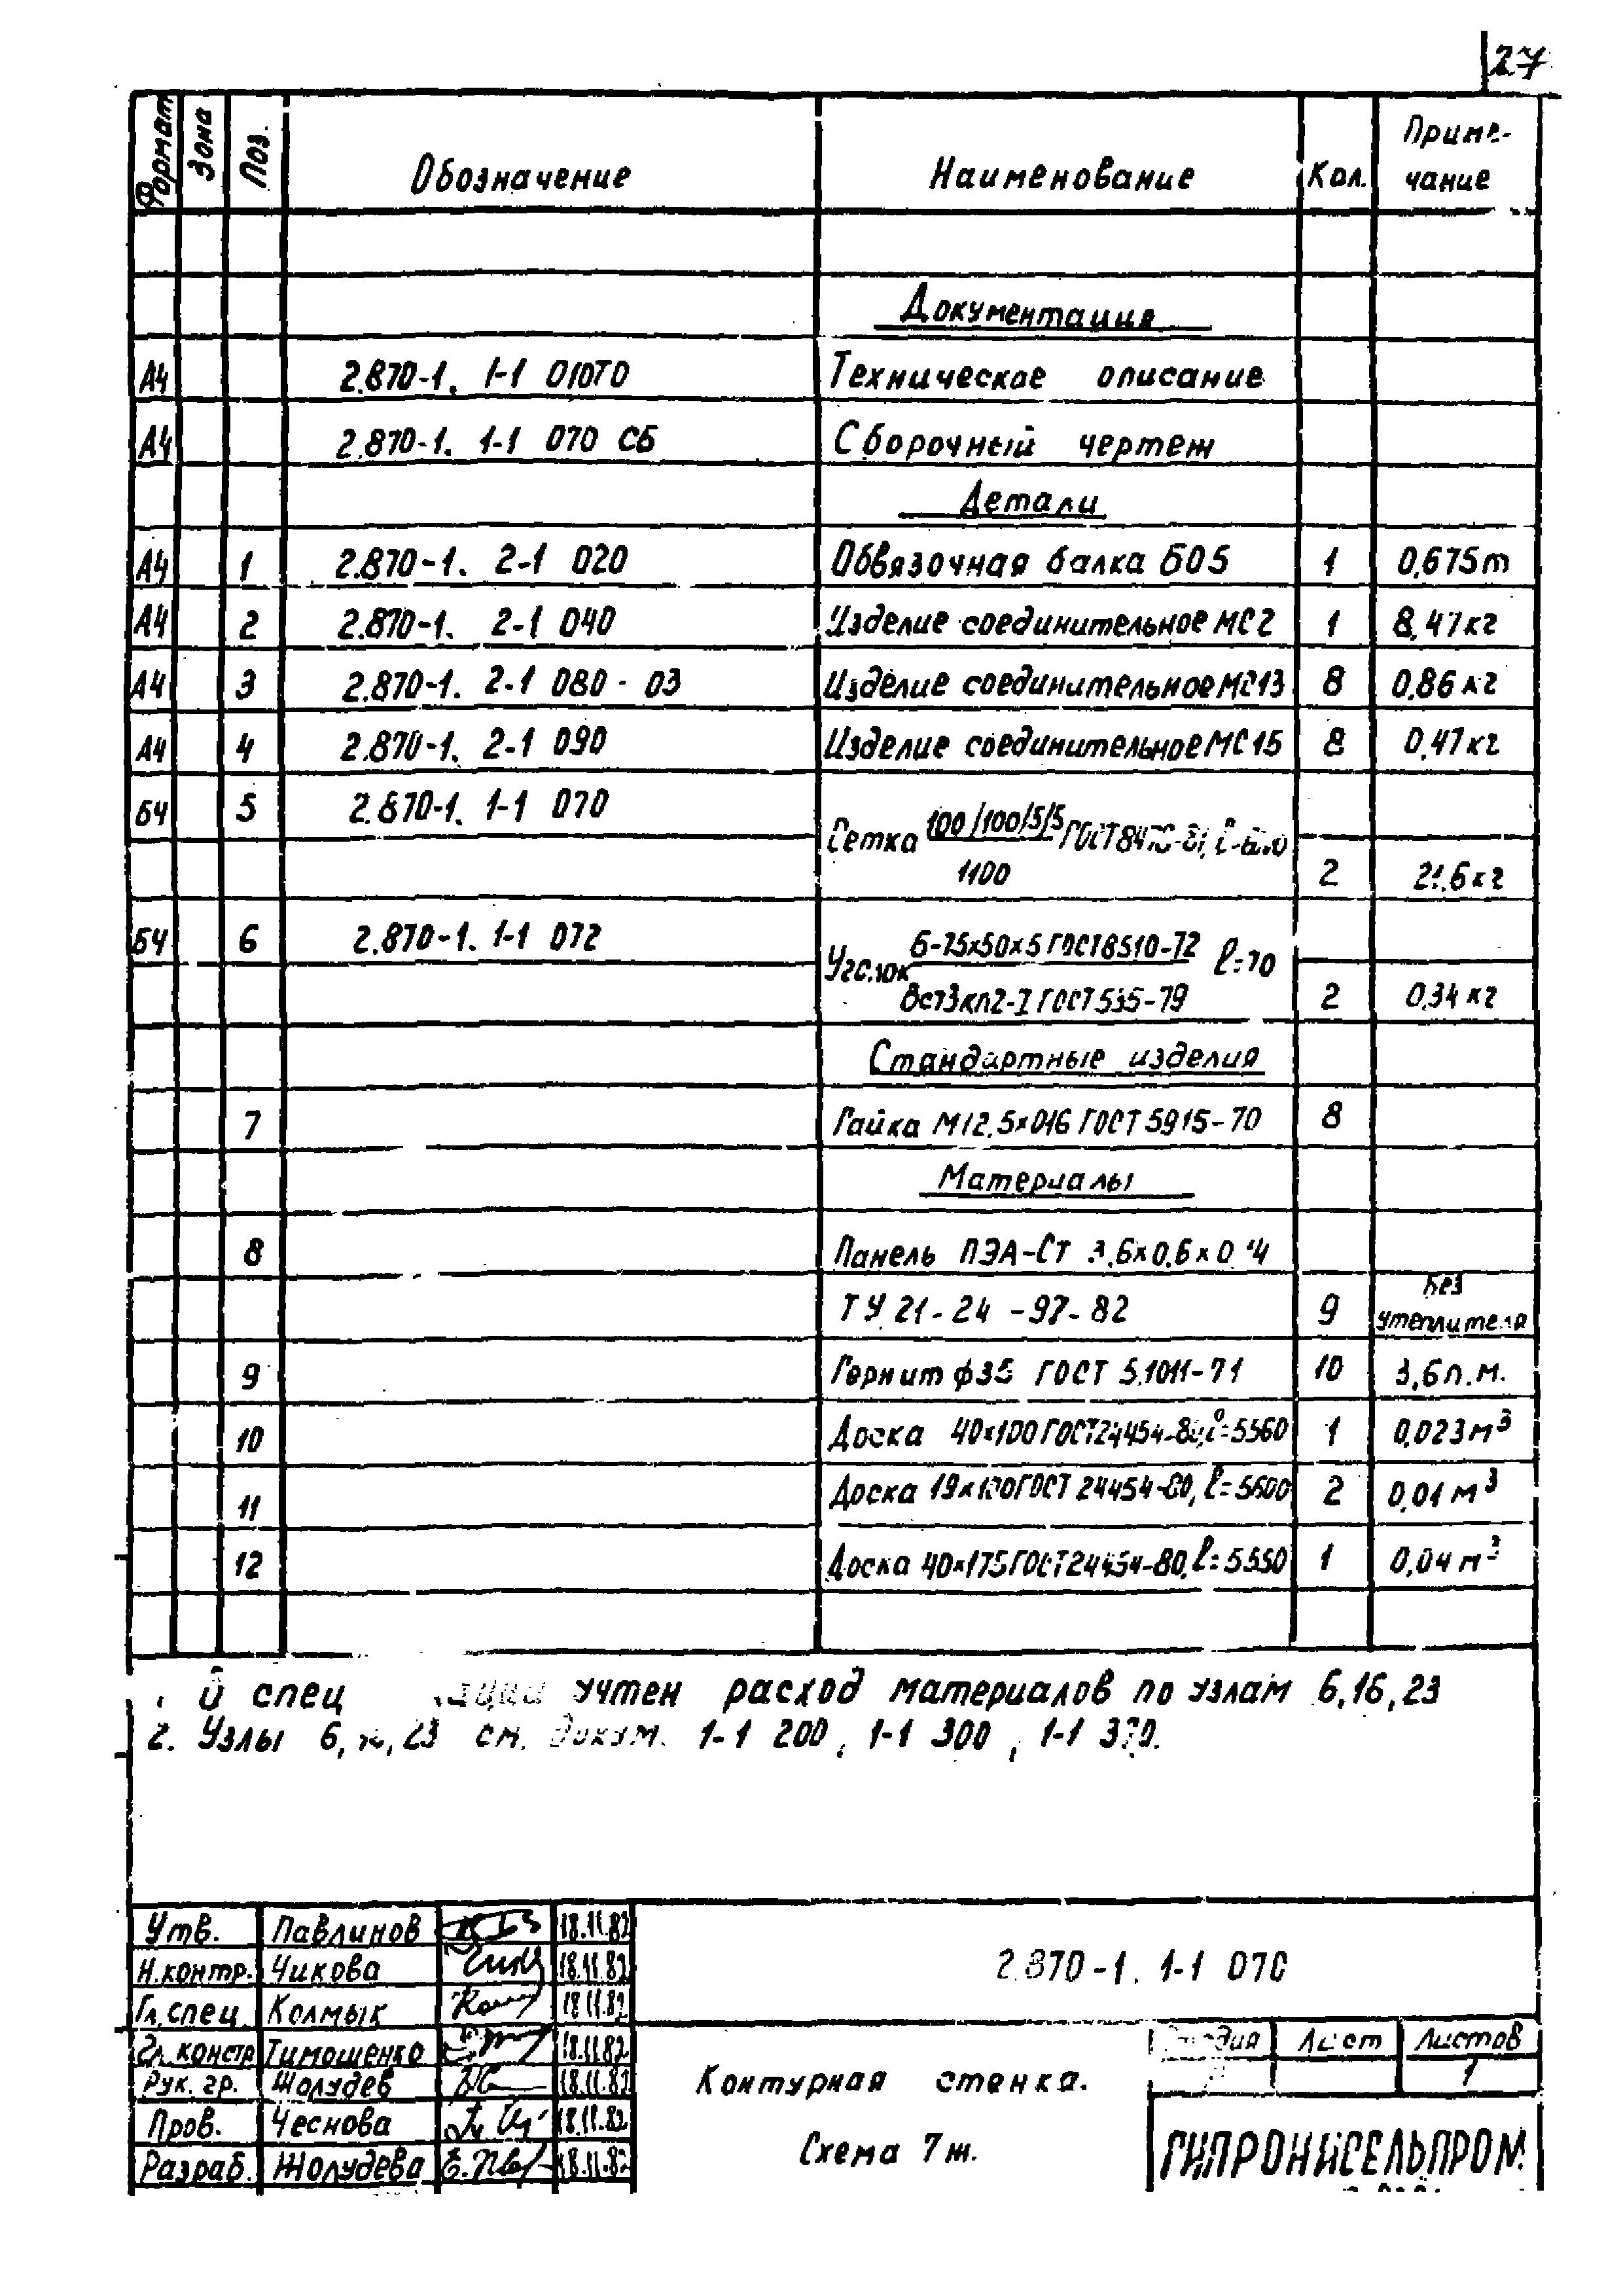 27
Формат Зона Поз. Обозначение Наименование Кол. Приме-
чание
Документация
А4 2.870-1. 1-1 010ТО Техническое описание
А4 2.870-1. 1-1 070 СБ Сборочный чертеж
Детали
А4 1 2.870-1. 2-1 020 Обвязочная балка Б05 1 0,675т
А4 2 2.870-1. 2-1 040 Изделие соединительное МС2 1 8,47кг
А4 3 2.870-1. 2-1 080-03 Изделие соединительное МС13 8 0,86кг
А4 4 2.870-1. 2-1 090 Изделие соединительное МС15 8 0,47кг
БЧ 5 2.870-1. 1-1 070
Сетка 100/100/5/5 ГОСТ
1100 2
БЧ 6 2.870-1. 1-1 072
Уголок Б-75х50х5 ГОСТ8510-72 ℓ=70
Вст3кп2-I ГОСТ 535-79 2 0,34 кг
Стандартные изделия
7 Гайка М12.5х016 ГОСТ 5915-70 8
Материалы
8 Панель ПЭА-Ст
ТУ 21-24-97-82 9 без
утеплителя
9 Гернит ф35 ГОСТ 5.1011-71 10 3,6п.м.
10 Доска 40х100 ГОСТ24454-80, ℓ=5560 1 0,023м³
11 Доска 19х100 ГОСТ 24454-80, ℓ=5600 2 0,01м³
12 Доска 40х175 ГОСТ24454-80, ℓ=5550 1 0,04м³
спец учтен расход материалов по узлам 6,16,23
2. Узлы 6, 23 см. докум. 1-1 200, 1-1 300, 1-1
Утв. Павлинов 18.11.82
Н.контр. Чикова 18.11.82 2.870-1. 1-1 070
Гл.спец. Колмык 18.11.82
Гл.констр Тимошенко 18.11.82 Стадия Лист Листов
Рук.гр. Жолудев 18.11.82 Контурная стенка. 1
Пров. Чеснова 18.11.82
Разраб. Жолудева 18.11.82 Схема 7ж. ГИПРОНИСЕЛЬПРОМ